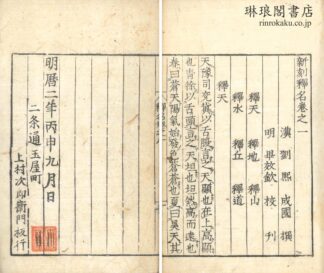 琳琅閣書店
rinrokaku.co.jp
新刻釋名卷之一
漢 劉熙 成國 撰
明 畢效欽 校刊
釋天 釋地 釋山
釋水 釋丘 釋道
釋天
天豫司兗冀以舌腹言之天顯也在上高顯
也青徐以舌頭言之天坦也坦然高而遠也
春曰蒼天陽氣始發色蒼蒼也夏曰昊天其
明曆二年丙申九月日
二条通玉屋町
上村次郎衛門板行